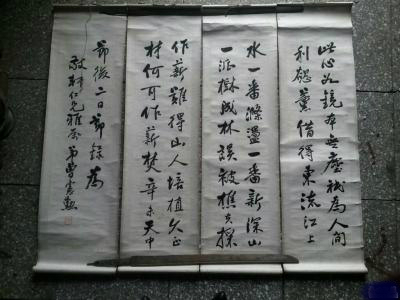 此心如镜本无尘祗为人间
利欲薰借得东流江上
水一番涤荡一番新深山
一派树成林误被樵夫採
作薪难得山人培植久正
材何可作薪焚辛未天中
节后二日节录为
敬轩仁兄雅居弟曾宪勋